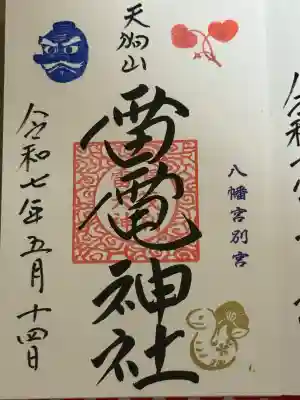 天狗山
八幡宮別宮
雷電神社
令和七年五月十四日